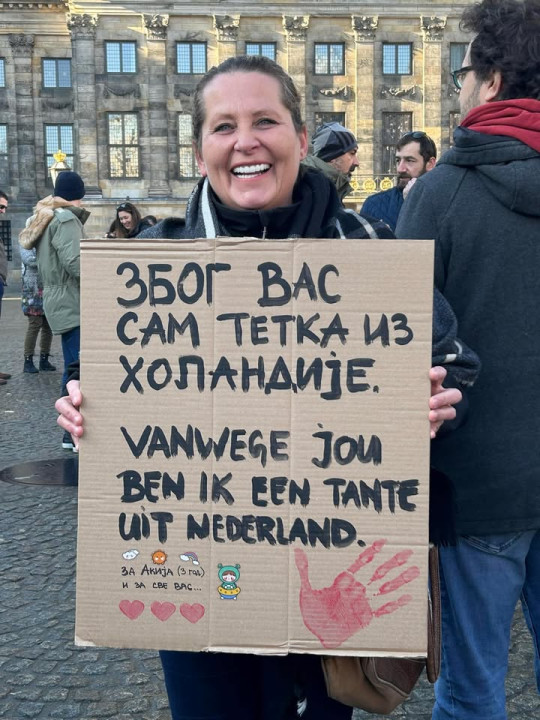 ЗБОГ ВАС
САМ ТЕТКА ИЗ
ХОЛАНДИЈЕ.
VANWEGE JOU
BEN IK EEN TANTE
UIT NEDERLAND.
ЗА АКИЈА (3 год)
И ЗА СВЕ ВАС...